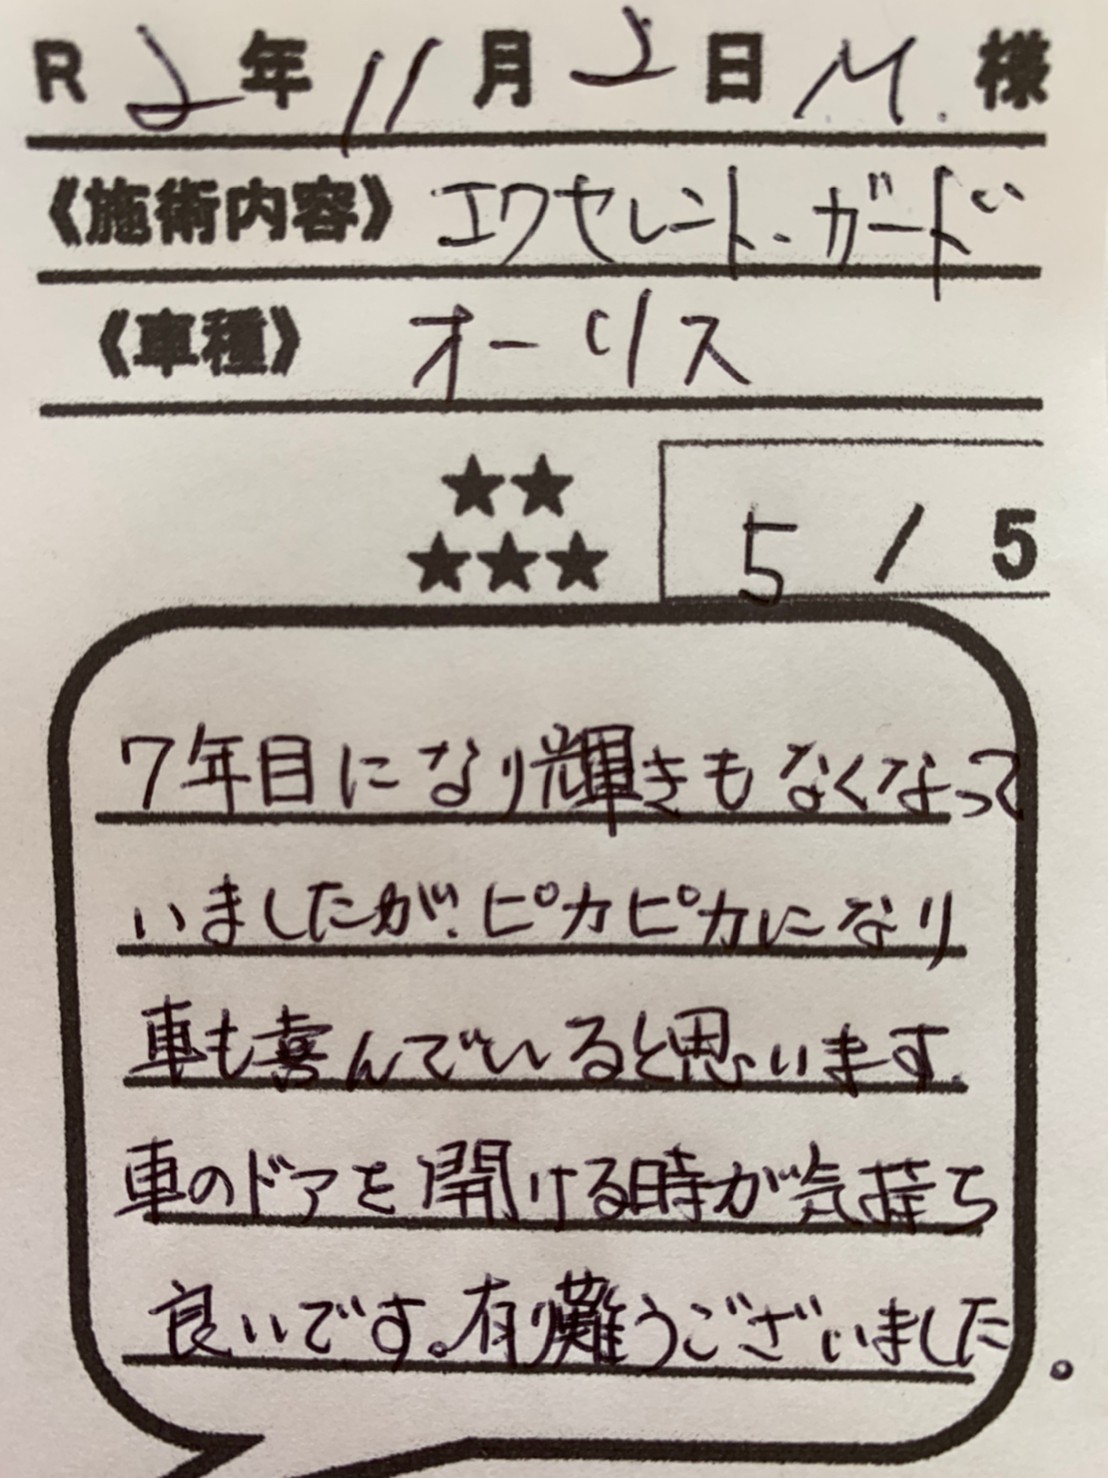 R 2年 11月 2日 M. 様
《施術内容》 エクセレント・ガード
《車種》 オーリス
★★
★★★ 5 / 5
7年目になり輝きもなくなって
いましたが、ピカピカになり
車も喜んでいると思います。
車のドアを開ける時が気持ち
良いです。有り難うございました。